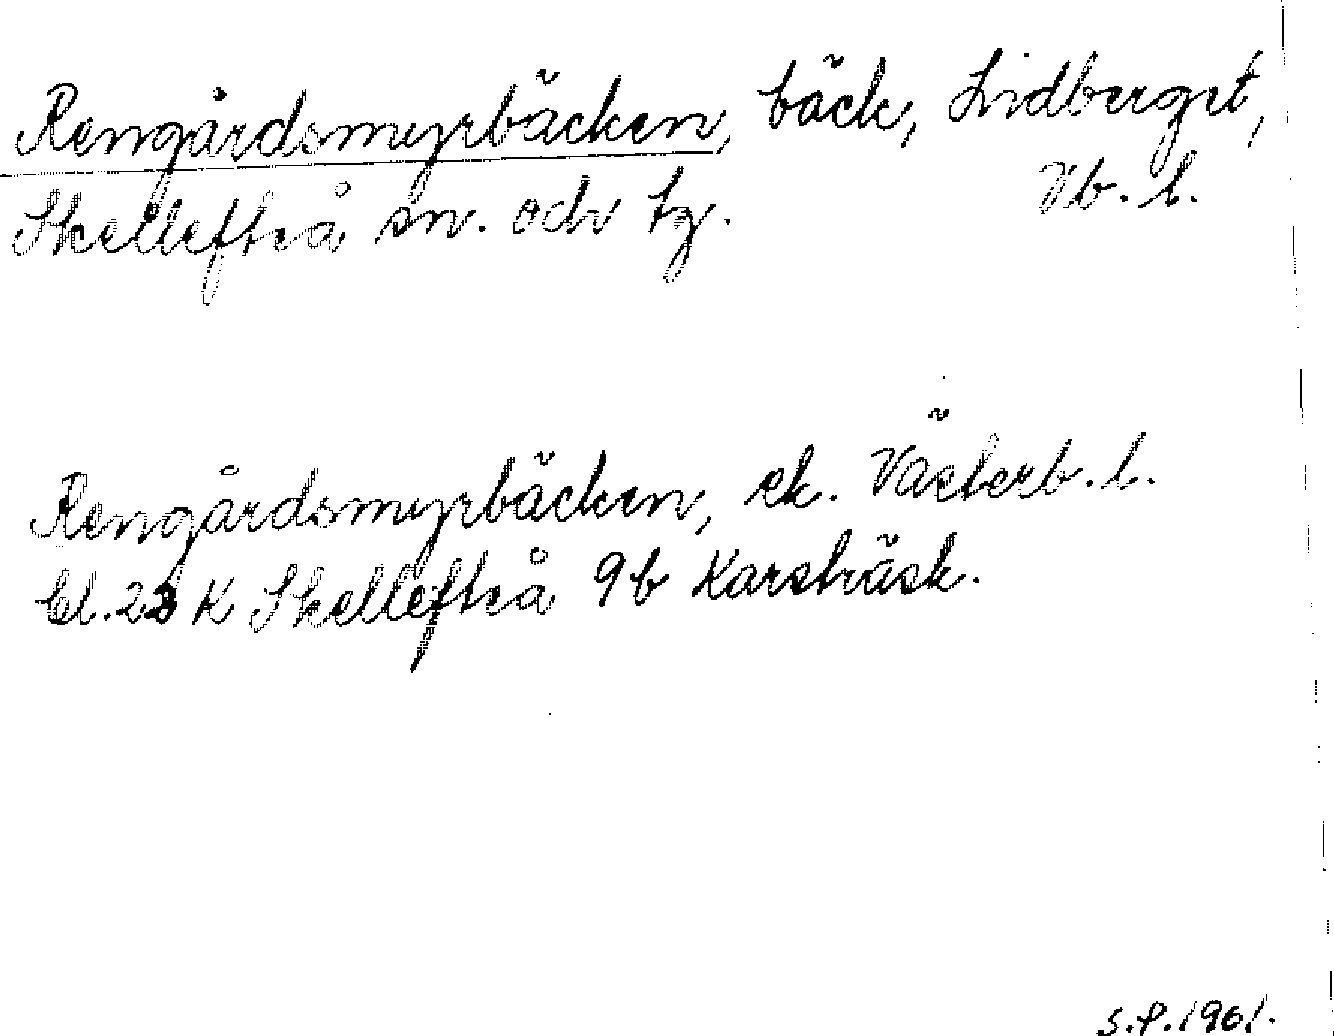 Rengårdsmyrbäcken, bäck, Lidberget,
Skellefteå sn. och tg. Vb. l.
Rengårdsmyrbäcken, ek. Västerb. l.
bl. 23 K Skellefteå 9b Karsträsk.
S.P. 1961.